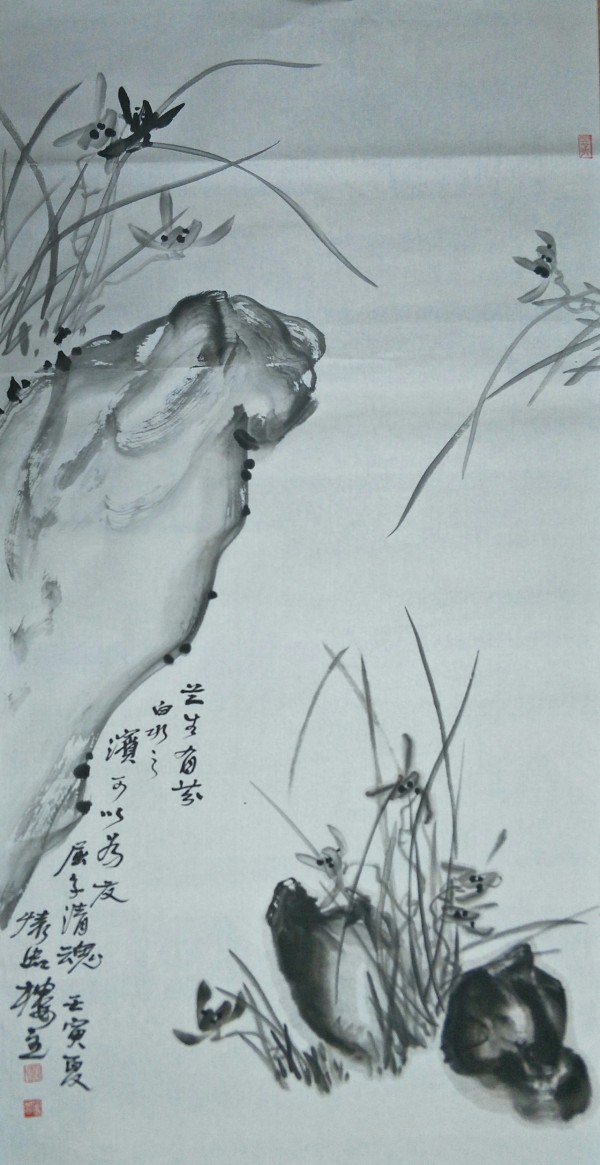 兰生有芬
白水之
濱可以为友
屈子清魂
壬寅夏
樓主